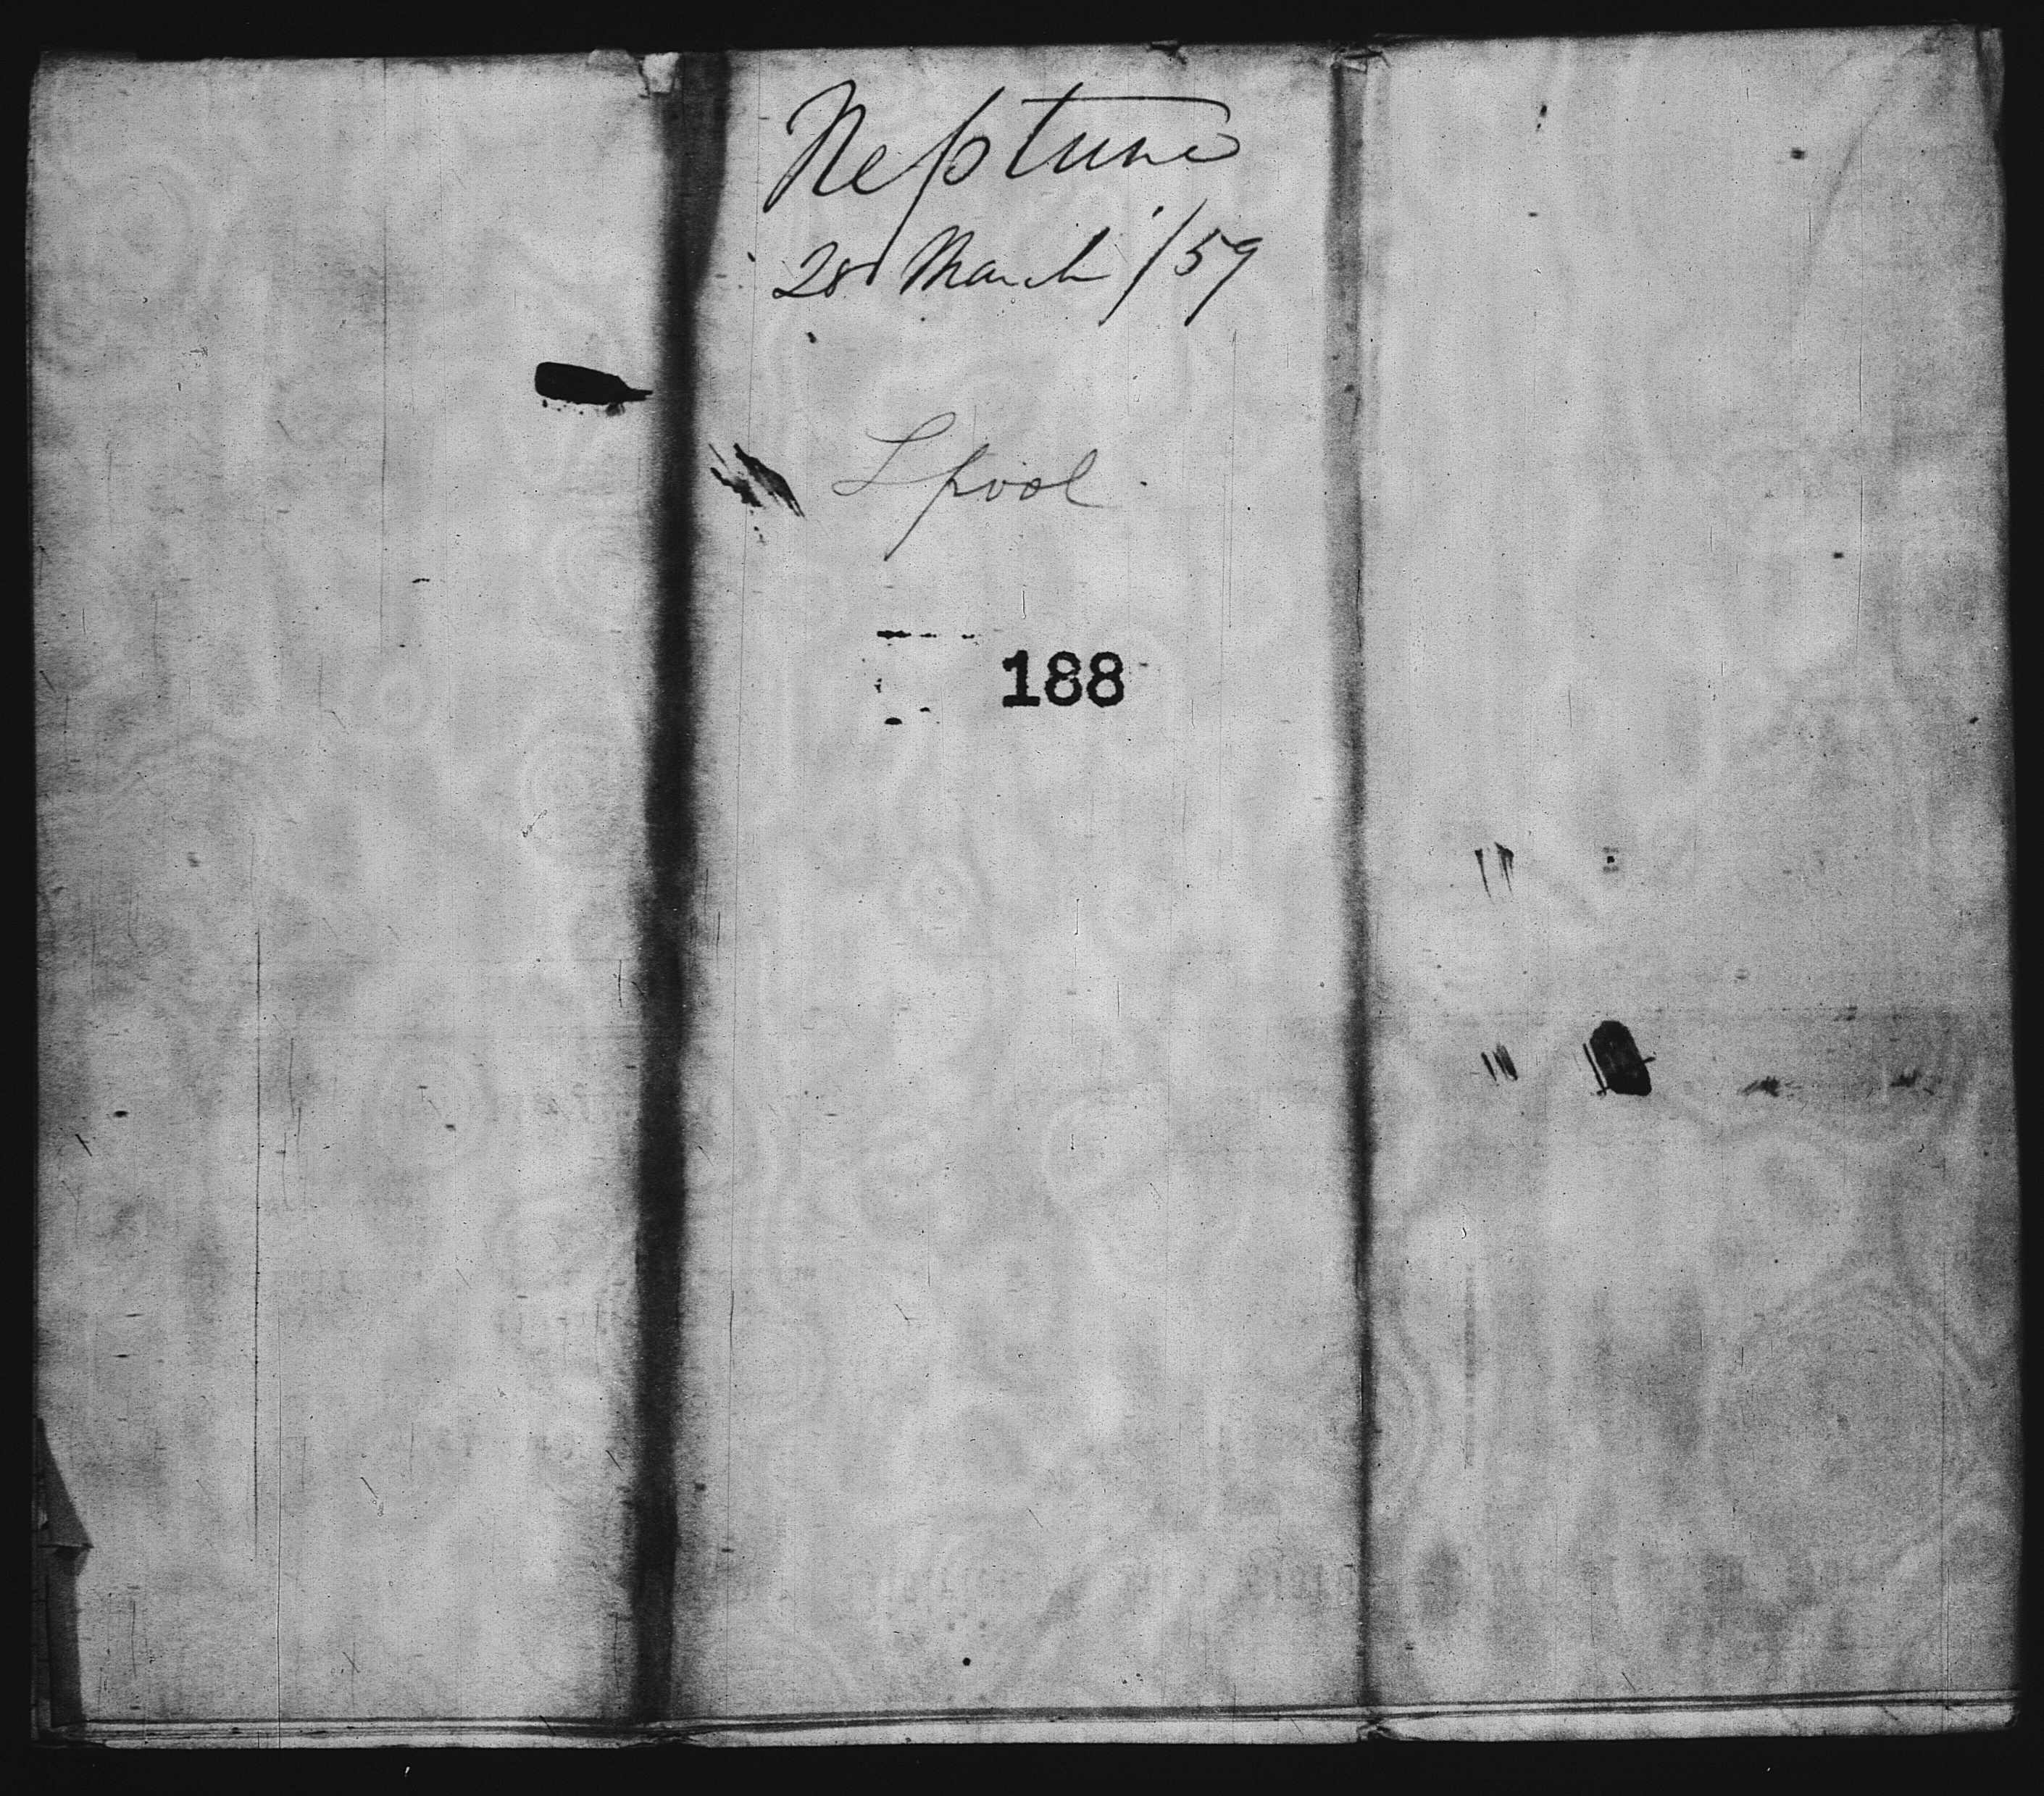 Neptune
28 March /59
Lpool.
188